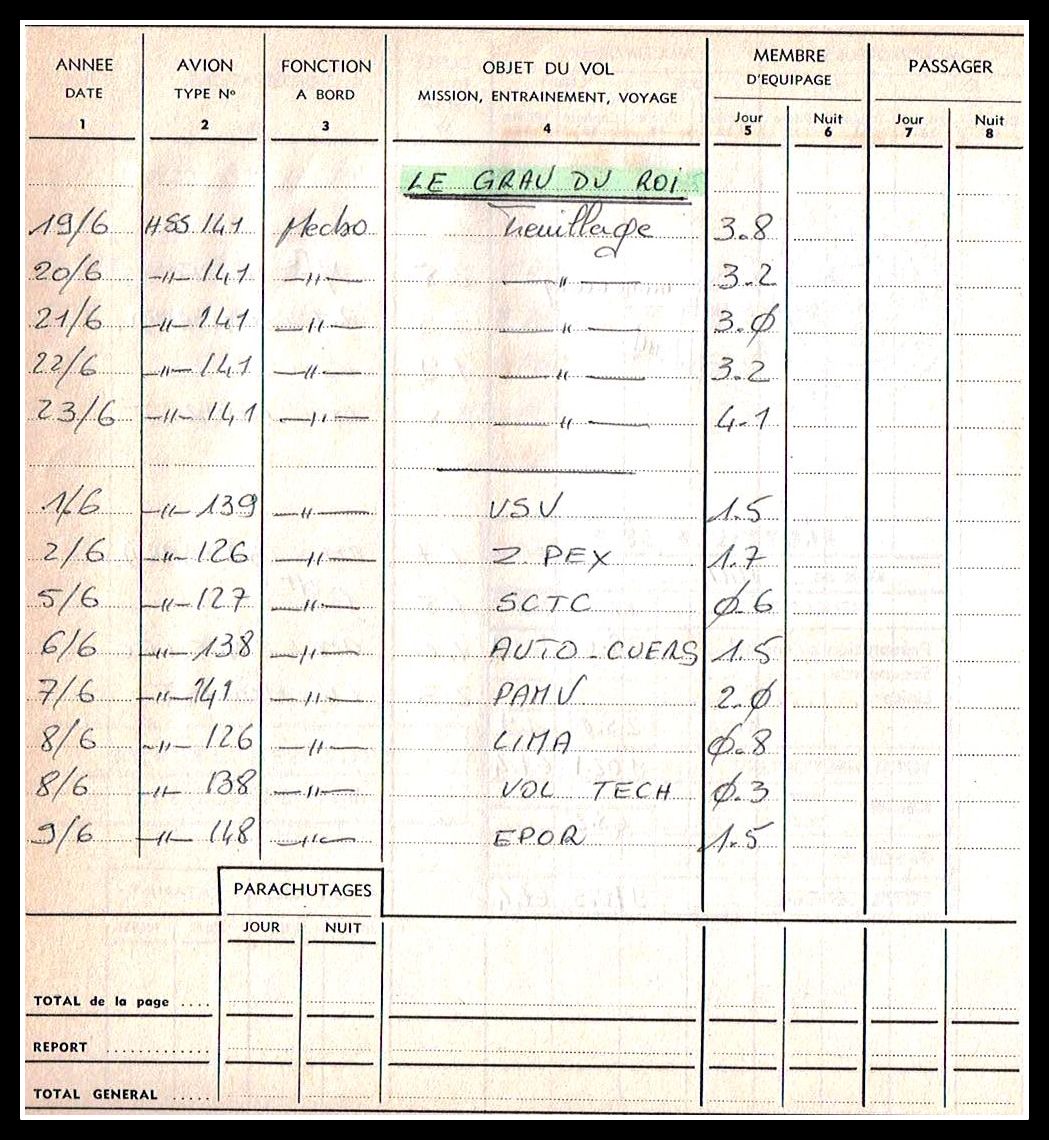 ANNEE AVION FONCTION OBJET DU VOL MEMBRE D'EQUIPAGE PASSAGER
DATE TYPE N° A BORD MISSION, ENTRAINEMENT, VOYAGE Jour Nuit Jour Nuit
1 2 3 4 5 6 7 8
LE GRAU DU ROI
19/6 HSS 141 Mecbo Treuillage 3.8
20/6 —"— 141 —"— —"— 3.2
21/6 —"— 141 —"— —"— 3.Ø
22/6 —"— 141 —"— —"— 3.2
23/6 —"— 141 —"— —"— 4.1
1/6 —"— 139 —"— VSV 1.5
2/6 —"— 126 —"— Z PEX 1.7
5/6 —"— 127 —"— SCTC Ø.6
6/6 —"— 138 —"— AUTO-CUERS 1.5
7/6 —"— 141 —"— PAMV 2.Ø
8/6 —"— 126 —"— LIMA Ø.8
8/6 —"— 138 —"— VOL TECH Ø.3
9/6 —"— 148 —"— EPOR 1.5
PARACHUTAGES
JOUR NUIT
TOTAL de la page ....
REPORT ............
TOTAL GENERAL .....